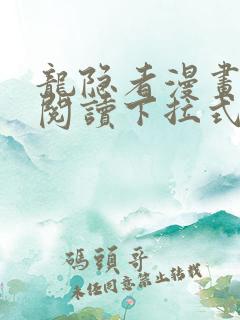 龍隐者漫畫
閱讀下拉式
碼頭哥
未经同意禁止转载